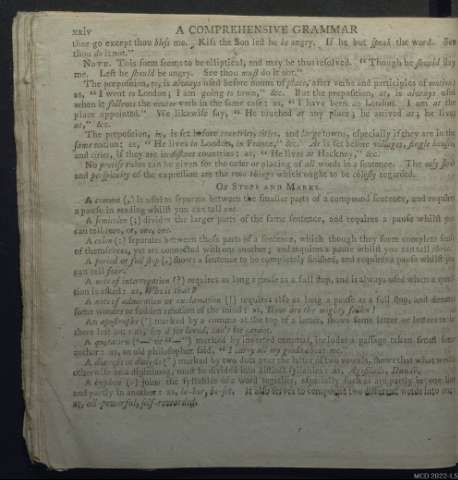 xxiv A COMPREHENSIVE GRAMMAR
thee go except thou bless me. Kiss the Son lest he be angry. If he but speak the word. See
thou do it not."
NOTE. This form seems to be elliptical, and may be thus resolved. "Though he should slay
me. Lest he should be angry. See thou must do it not."
The preposition, to, is always used before nouns of place, after verbs and participles of motion:
as, "I went to London; I am going to town," &c. But the preposition, at, is always used
when it follows the neuter verb in the same case: as, "I have been at London. I am at the
place appointed." We likewise say, "He touched at any place; he arrived at; he lives
at," &c.
The preposition, in, is set before countries, cities, and large towns, especially if they are in the
same nation: as, "He lives in London, in France," &c. At is set before villages, single houses,
and cities, if they are in distant countries: as, "He lives at Hackney," &c.
No precise rules can be given for the order or placing of all words in a sentence. The only
and perspicuity of the expression are the two things which ought to be chiefly regarded.
OF STOPS AND MARKS.
A comma (,) is used to separate between the smaller parts of a compound sentence, and requires
a pause in reading whilst you can tell one.
A semicolon (;) divides the larger parts of the same sentence, and requires a pause whilst you
can tell one, one.
A colon (:) separates between those parts of a sentence, which though they form complete sense
of themselves, yet are connected with one another; and requires a pause whilst you can tell three.
A period or full stop (.) shows a sentence to be completely finished, and requires a pause whilst you
can tell four.
A note of interrogation (?) requires as long a pause as a full stop, and is always used when a question
is asked: as, Who is that?
A note of admiration or exclamation (!) requires also as long a pause as a full stop, and denotes
some wonder or sudden emotion of the mind: as, How are the mighty fallen!
An apostrophe (') marked by a comma at the top of a letter, shows some letter or letters to be
there left out: as, for loved, can't for cannot.
A quotation ("— or "—") marked by inverted commas, includes a passage taken from some
author: as, an old philosopher said, "I carry all my goods about me.
A (¨) marked by two dots over the latter of two vowels, shows that what would
otherwise be a diphthong, must be divided into distinct syllables: as,
A hyphen (-) joins the syllables of a word together, especially such as are partly in one line
and partly in another: as, It also serves to compound two different words into one:
as, all-powerful, self-
MCD 2022-LS